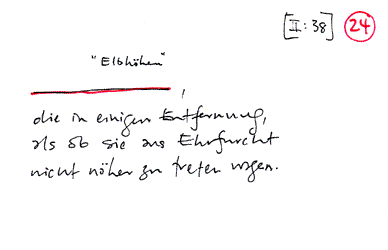 [II:38] 24
"Elbhöhen"
,
die in einigen Entfernung,
als ob sie aus Ehrfurcht
nicht näher zu treten wagen.